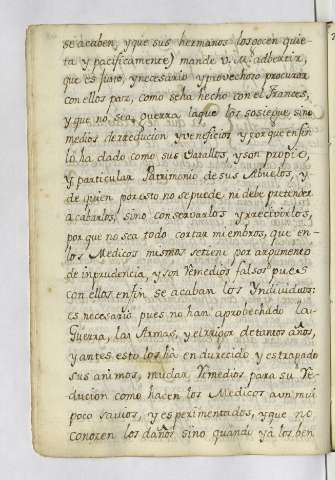 se acaben, y que sus hermanos los gocen quie-
ta y pacificamente) mande V. M. adbertir,
que es justo, y necesario y provechoso procurar
con ellos paz, como seha hecho con el Frances,
y que no sea guerra la que los sosiegue sino
medios de rreducion y veneficios y porque en fin
lo ha dado como sus Vasallos, y son propio,
y particular Patrimonio de sus Abuelos, y
de quien por esto no se puede, ni debe pretender
acabarlos, sino conservarlos y rrecivirlos,
por que no sea todo cortar miembros, que en-
los Medicos mesmos setiene por argumento
de inprudencia, y son Remedios falsos pues
con ellos enfin se acaban los Yndividuos:
es necesario pues no han aprobechado la-
Guerra, las Armas, y el rrigor de tantos años,
y antes esto los ha endurecido y estragado
sus animos, mudar Remedios para su Re-
ducion como hacen los Medicos aun mui
poco savios, y esperimentados, y que no
conocen los daños sino quando ya los ben